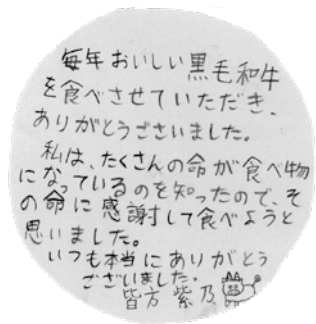 毎年おいしい黒毛和牛
を食べさせていただき、
ありがとうございました。
私は、たくさんの命が食べ物
になっているのを知ったので、そ
の命に感謝して食べようと
思いました。
いつも本当にありがとう
ございました。
皆方紫乃